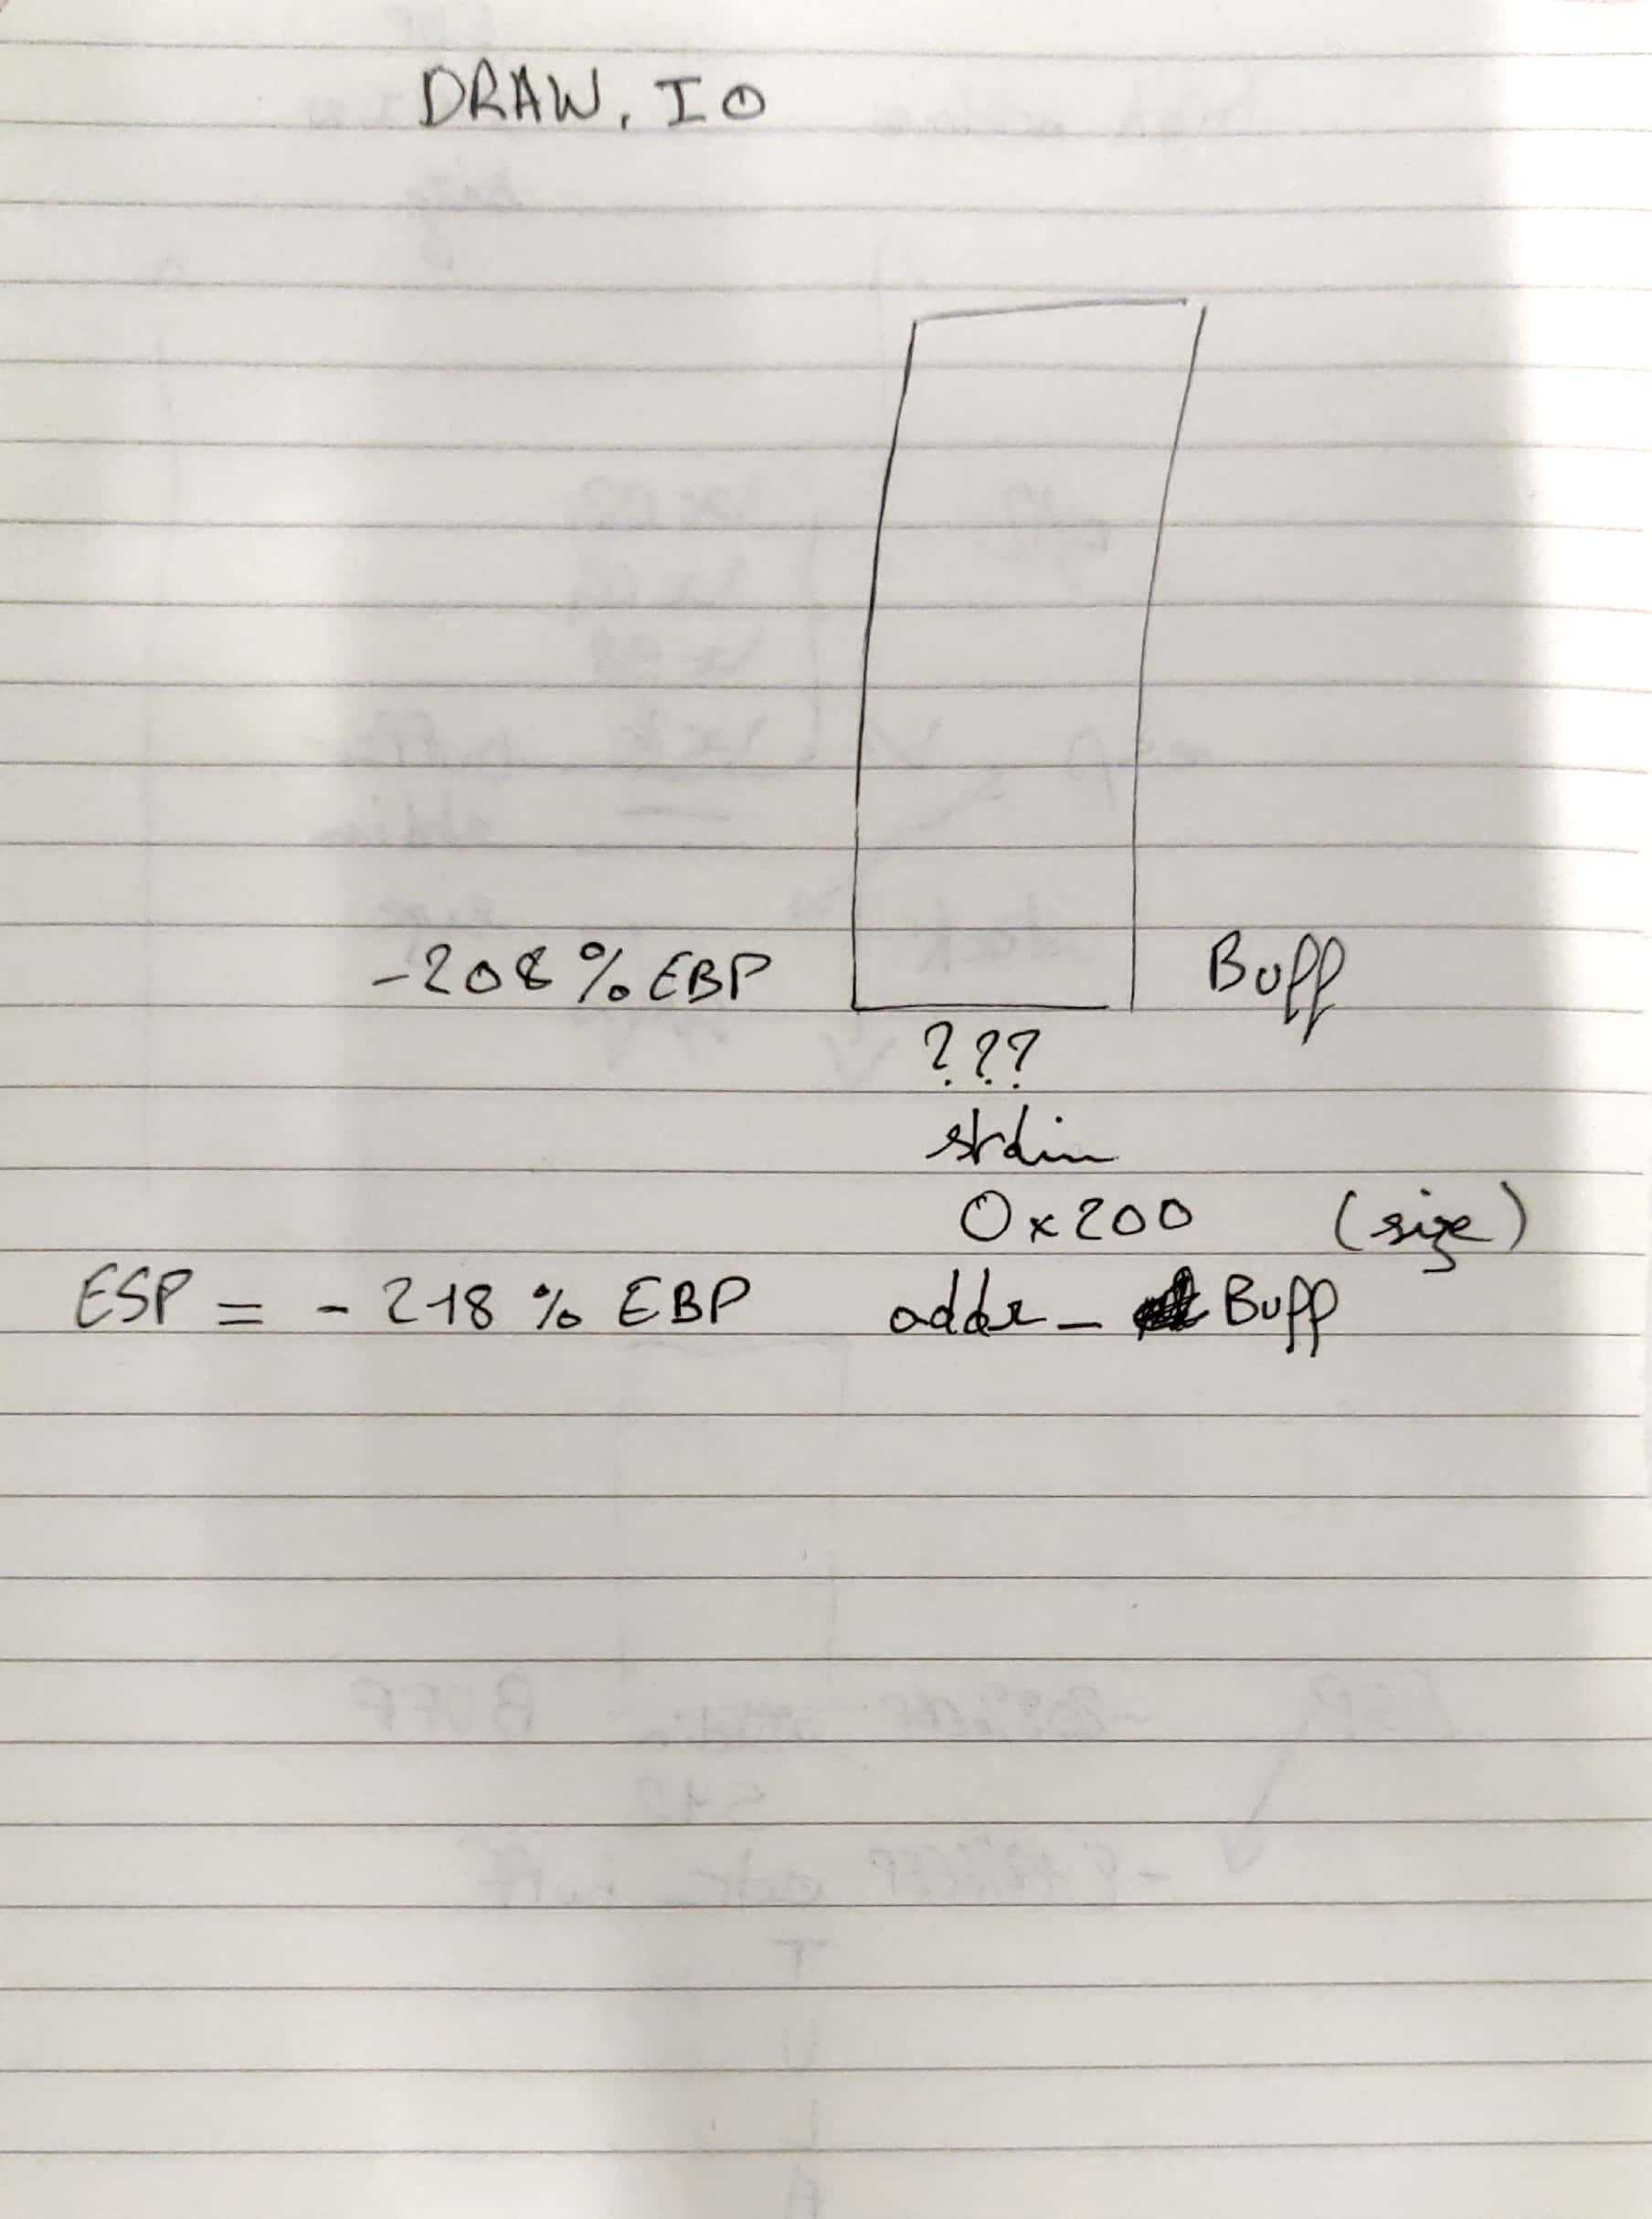 DRAW.IO
-208 % EBP Buff
???
stdin
0x200 (size)
ESP = - 218 % EBP addr_ Buff